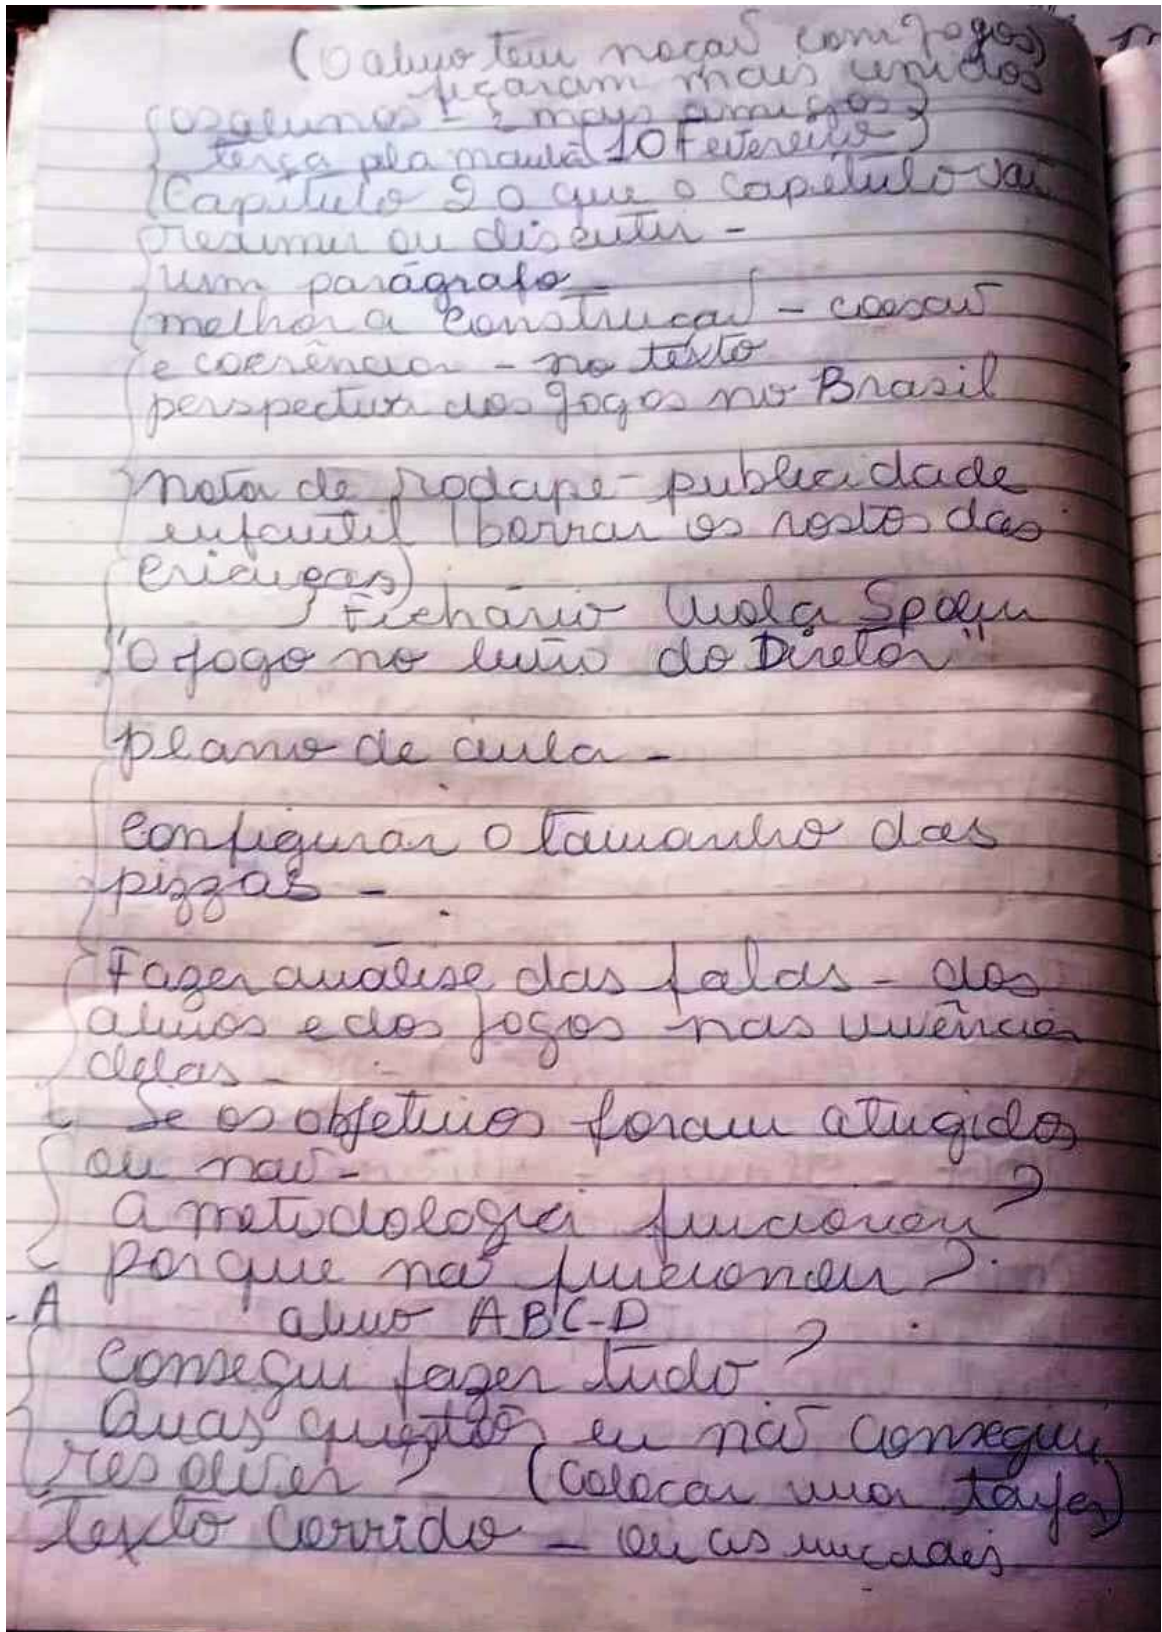 (O aluno tem noção com jogos)
ficaram mais unidos
os alunos - e mais amigos
terça pela manhã (10 Fevereiro)
Capítulo 2 o que o capítulo vai
resumir ou discutir -
um parágrafo -
melhor a construção - coesão
e coerência - no texto
perspectiva dos jogos no Brasil
nota de rodape - publicidade
infantil (borrar os rostos das
crianças)
Fichário Viola Spolin
"O jogo no livro do Diretor"
plano de aula -
Configurar o tamanho das
pizzas -
Fazer análise das falas - dos
alunos e dos jogos nas vivência
delas -
Se os objetivos foram atingidos
ou não -
a metodologia funcionou?
porque não funcionou?
-A aluno A B C-D
Consegui fazer tudo?
Quais questão eu não consegui
resolver? (Colocar uma)
Texto Corrido - ou as